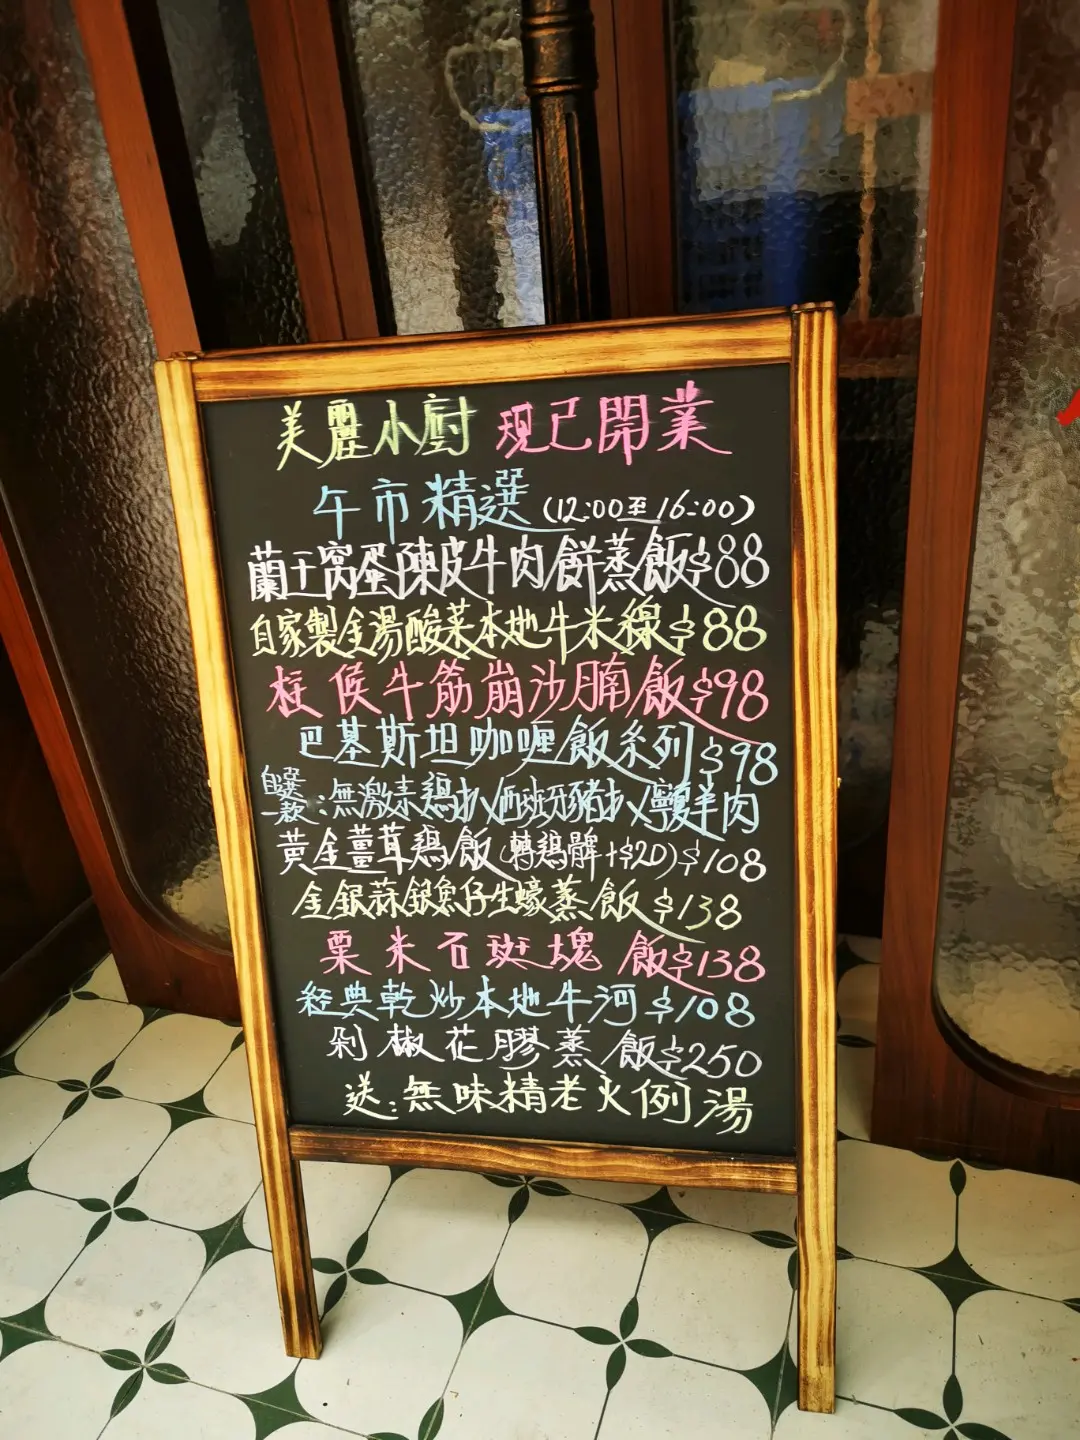 美麗小廚 現已開業
午市精選 (12:00至16:00)
蘭王窩蛋陳皮牛肉餅蒸飯$88
自家製金湯酸菜本地牛米線$88
柱侯牛筋崩沙腩飯$98
巴基斯坦咖喱飯系列$98
自選一款:無激素鷄扒/西班牙豬扒/寧夏羊肉
黃金薑茸鷄飯(轉鷄髀+$20)$108
金銀蒜銀魚仔生蠔蒸飯$138
粟米石斑塊飯$138
經典乾炒本地牛河$108
剁椒花膠蒸飯$250
送:無味精老火例湯